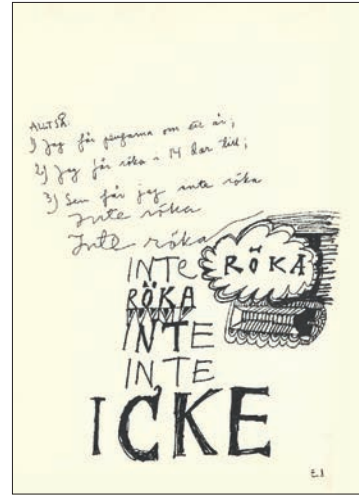 ALLTSÅ:
1) Jag får pengarna om ett år;
2) Jag får röka i 14 dar till;
3) Sen får jag inte röka
Inte röka
Inte röka
INTE RÖKA
RÖKA
INTE
INTE
ICKE
E.I.